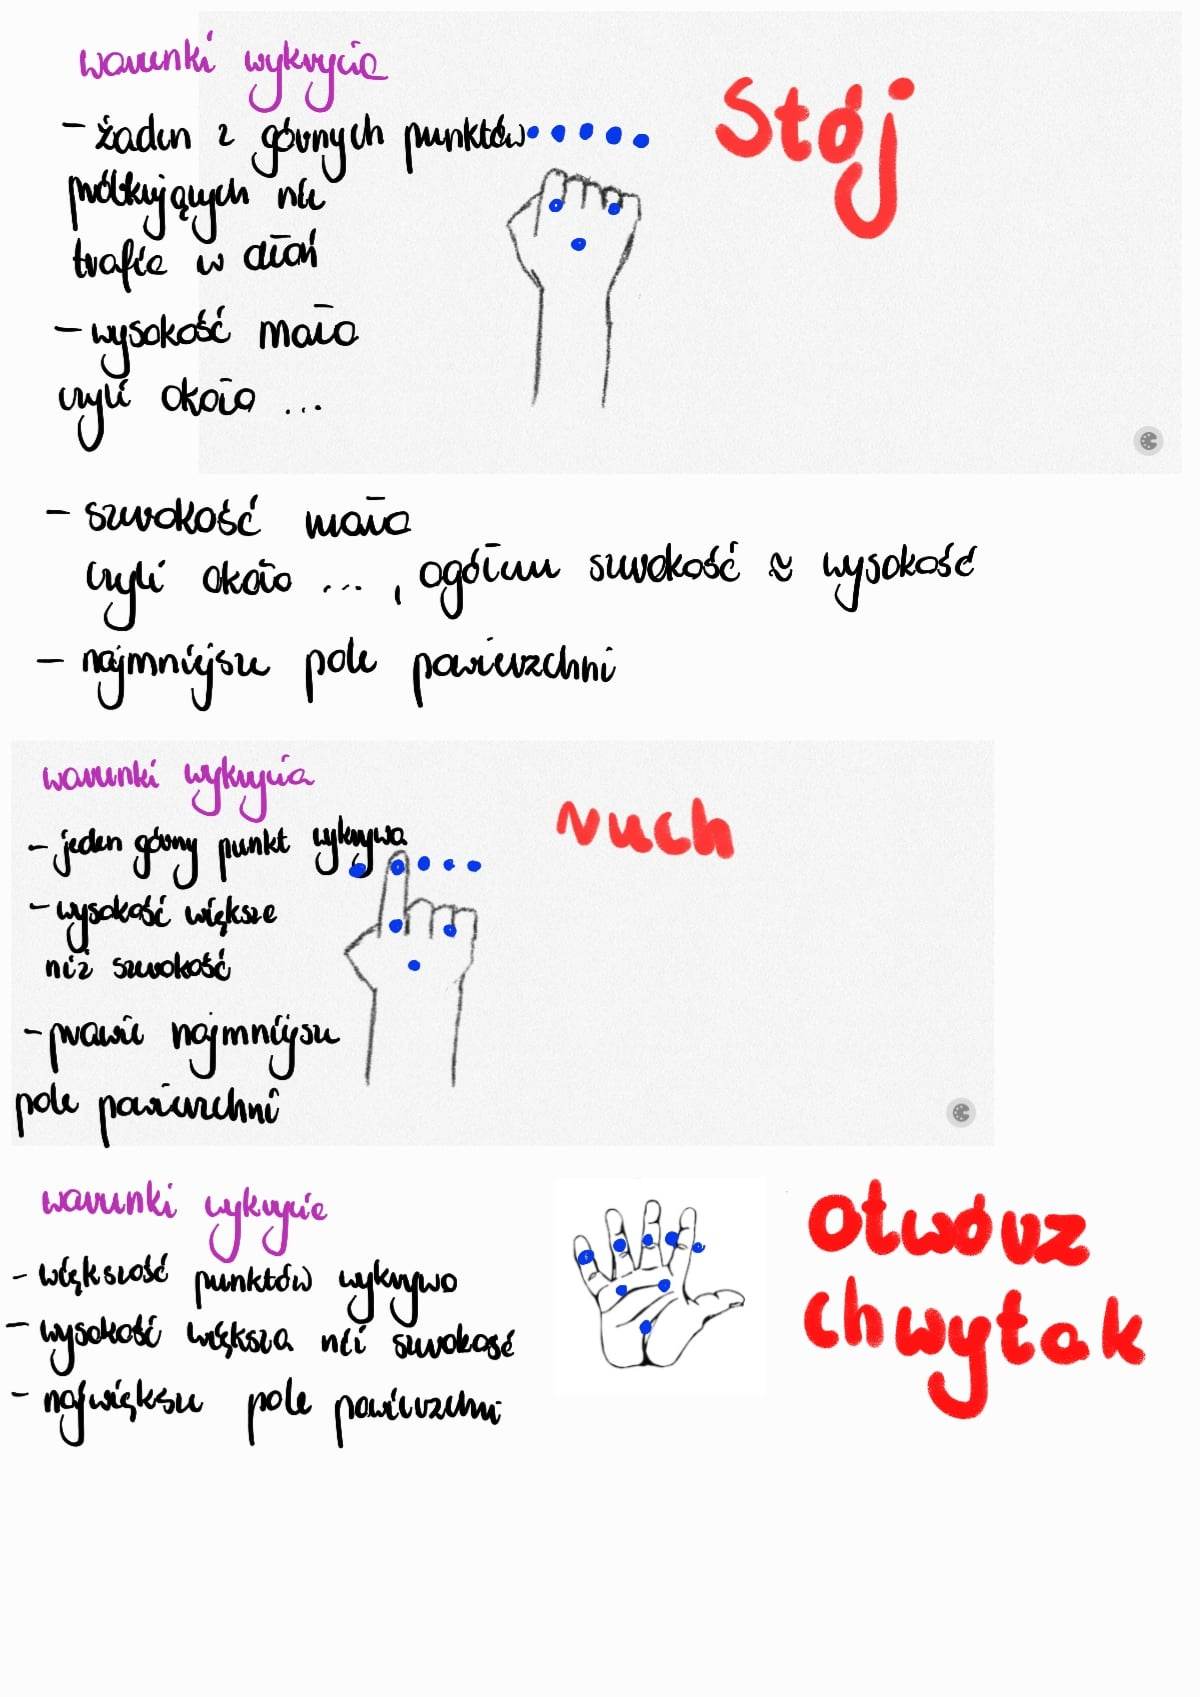 warunki wykrycia
- żaden z górnych punktów
próbkujących nie
trafia w dłoń
- wysokość mała
czyli około ...
Stój
- szerokość mała
czyli około ... , ogółem szerokość ≈ wysokość
- najmniejsze pole powierzchni
warunki wykrycia
- jeden górny punkt wykrywa
- wysokość większa
niż szerokość
- prawie najmniejsze
pole powierzchni
ruch
warunki wykrycia
- większość punktów wykrywa
- wysokość większa niż szerokość
- największe pole powierzchni
otwórz
chwytak